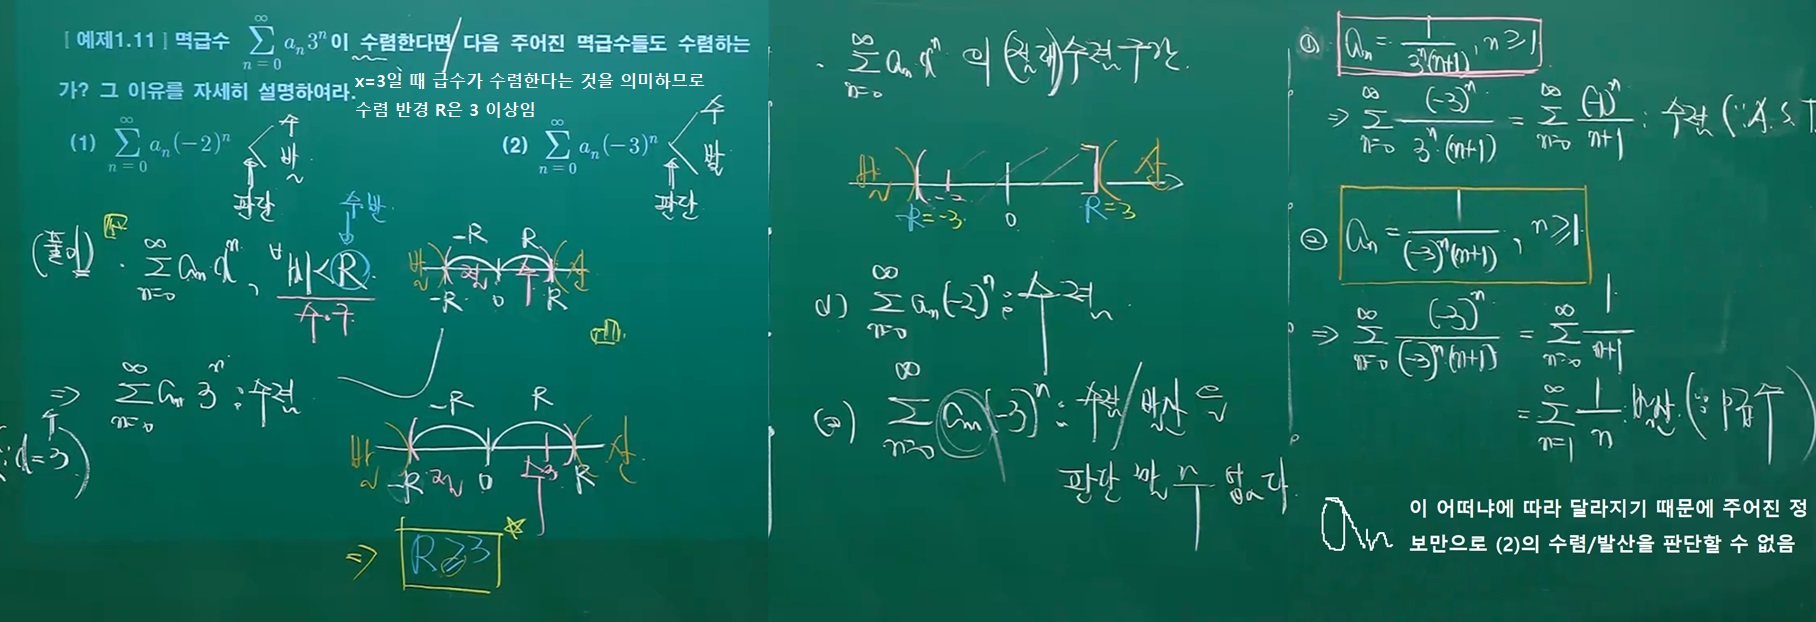 [예제1.11] 멱급수 ∑_{n=0}^{∞} a_n 3^n 이 수렴한다면 다음 주어진 멱급수들도 수렴하는
가? 그 이유를 자세히 설명하여라.
x=3일 때 급수가 수렴한다는 것을 의미하므로
수렴 반경 R은 3 이상임
(1) ∑_{n=0}^{∞} a_n(-2)^n 수 발
판단
(2) ∑_{n=0}^{∞} a_n(-3)^n 수 발
판단
(풀이) · ∑_{n=0}^{∞} a_n x^n, ∀|x|<R
수반
수·구
-R R
발 산
-R 0 R
⇒ ∑_{n=0}^{∞} a_n 3^n : 수렴
(∵ x=3)
-R R
발 산
-R 0 3 R
⇒ R≥3
· ∑_{n=0}^{∞} a_n x^n 의 (절대)수렴구간.
발 산
-2
R=-3 0 R=3
(1) ∑_{n=0}^{∞} a_n(-2)^n : 수렴
(2) ∑_{n=0}^{∞} a_n(-3)^n : 수렴/발산을
판단할 수 없다.
① a_n = 1/(3^n(n+1)), n≥1
⇒ ∑_{n=0}^{∞} (-3)^n/(3^n·(n+1)) = ∑_{n=0}^{∞} (-1)^n/(n+1) : 수렴 (∵A.S.T
② a_n = 1/((-3)^n(n+1)), n≥1
⇒ ∑_{n=0}^{∞} (-3)^n/((-3)^n(n+1)) = ∑_{n=0}^{∞} 1/(n+1)
= ∑_{n=1}^{∞} 1/n : 발산 (∵ p급수)
a_n 이 어떠냐에 따라 달라지기 때문에 주어진 정
보만으로 (2)의 수렴/발산을 판단할 수 없음